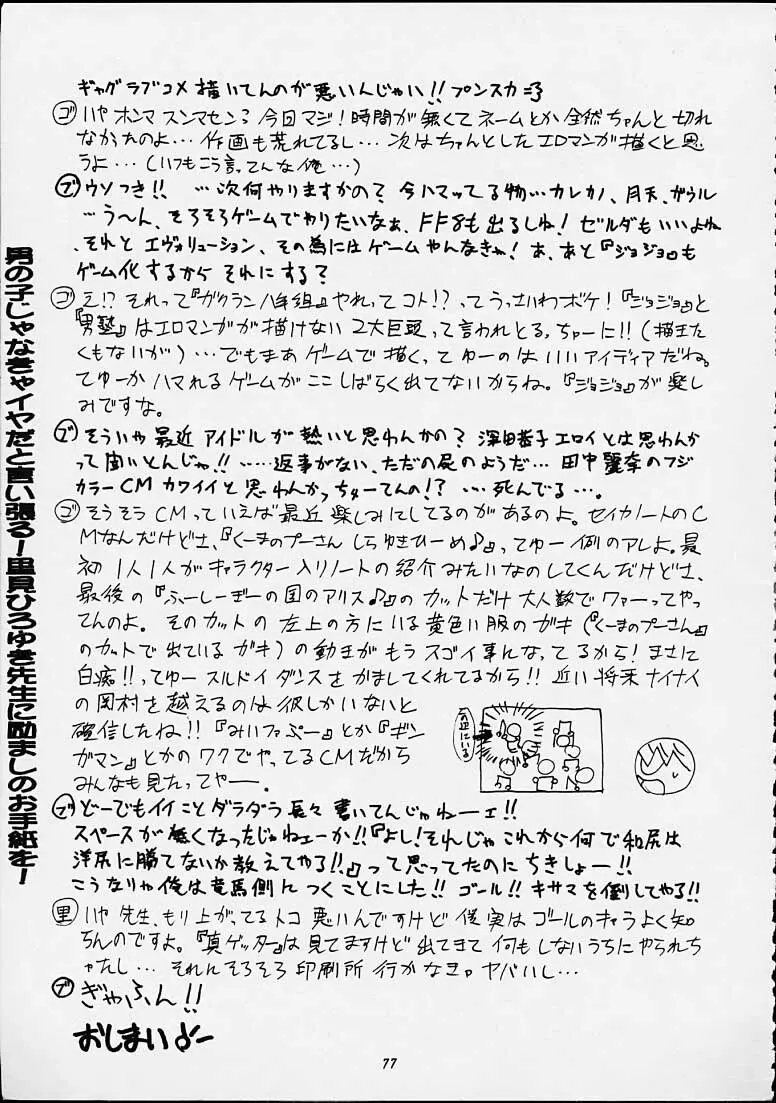 ギャグラブコメ描いてんのが悪いんじゃい!!プンスカ=3
ゴ いや ホンマ スンマセン?今日マジ!時間が無くてネームとか全然ちゃんと切れ
なかったのよ…作画も荒れてるし…次はちゃんとしたエロマンガ描くと思
うよ…(いつもこう言ってんな俺…)
ブ ウソつき!!…次何やりますかの?今ハマってる物…カレカノ、月天、ガウル
…う〜ん、そろそろゲームでやりたいなぁ、FF8も出るしね!ゼルダもいいよね
、それとエヴォリューション、その為にはゲームやんなきゃ!あ、あと『ジョジョ』も
ゲーム化するからそれにする?
ゴ え!?それって『ガクラン八年組』やれってコト!?ってうっさいわボケ!『ジョジョ』と
『男塾』はエロマンガが描けない2大巨頭って言われとる,ちゅーに!!(描きた
くもないが)…でもまあゲームで描くってゆーのはいいアイディアだね。
てゆーかハマれるゲームがここしばらく出てないからね。『ジョジョ』が楽し
みですな。
ブ そういや最近アイドルが熱いと思わんかの?深田恭子エロイとは思わんか
って聞いとんじゃ!!……返事がない、ただの屍のようだ…田中麗奈のフジ
カラーCMカワイイと思わんかっちゅーてんの!?…死んでる…。
ゴ そうそうCMっていえば最近楽しみにしてるのがあるのよ。セイカノートのC
Mなんだけどさ、『くーまのプーさん しらゆきひーめ♪』ってゆー例のアレよ。最
初1人1人がキャラクター入りノートの紹介みたいなのしてくんだけどさ、
最後の『ふーしーぎーの国のアリス♪』のカットだけ大人数でワァーってやっ
てんのよ。そのカットの左上の方にいる黄色い服のガキ(『くーまのプーさん』
のカットで出ているガキ)の動きがもうスゴイ事になってるから!まさに
白痴!!ってゆースルドイダンスをかましてくれてるから!!近い将来ナイナイ
の岡村を越えるのは彼しかいないと
確信したね!!『みいファぷー』とか『ギン
ガマン』とかのワクでやってるCMだから
みんなも見たってやー。
この辺にいる
ブ どーでもイイことダラダラ長々書いてんじゃねーェ!!
スペースが無くなったじゃねェーか!!『よし!それじゃこれから何で和尻は
洋尻に勝てないか教えてやる!!』って思ってたのにちきしょー!!
こうなりゃ俺は竜馬側につくことにした!!ゴール!!キサマを倒してやる!!
里 いや先生、もり上がってるトコ悪いんですけど僕実はゴールのキャラよく知
らんのですよ。『真ゲッター』は見てますけど出てきて何もしないうちにやられち
ゃたし…それにそろそろ印刷所行かなきゃヤバいし…
ブ ぎゃふん!!
おしまい♪ー
男の子じゃなきゃイヤだと言い張る!里見ひろゆき先生に励ましのお手紙を!
77